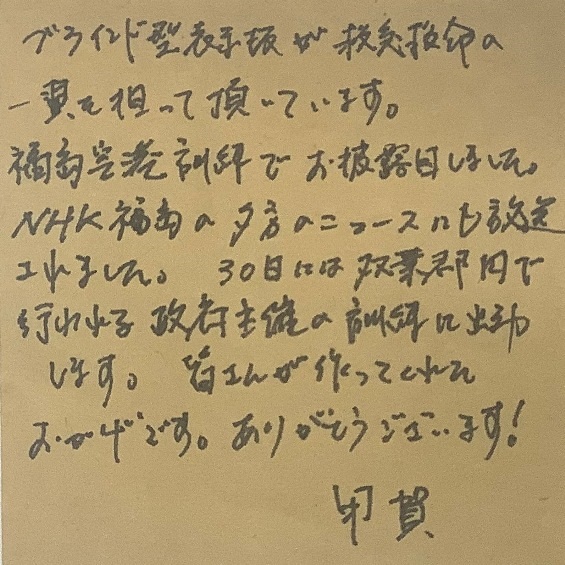 ブラインド型表示板が救急救命の
一翼を担って頂いています。
福島空港訓練でお披露目しました。
NHK福島の夕方のニュースにも放送
されました。 30日には双葉郡内で
行われる政府主催の訓練に出動
します。 皆さんが作ってくれた
おかげです。ありがとうございます!
甲賀